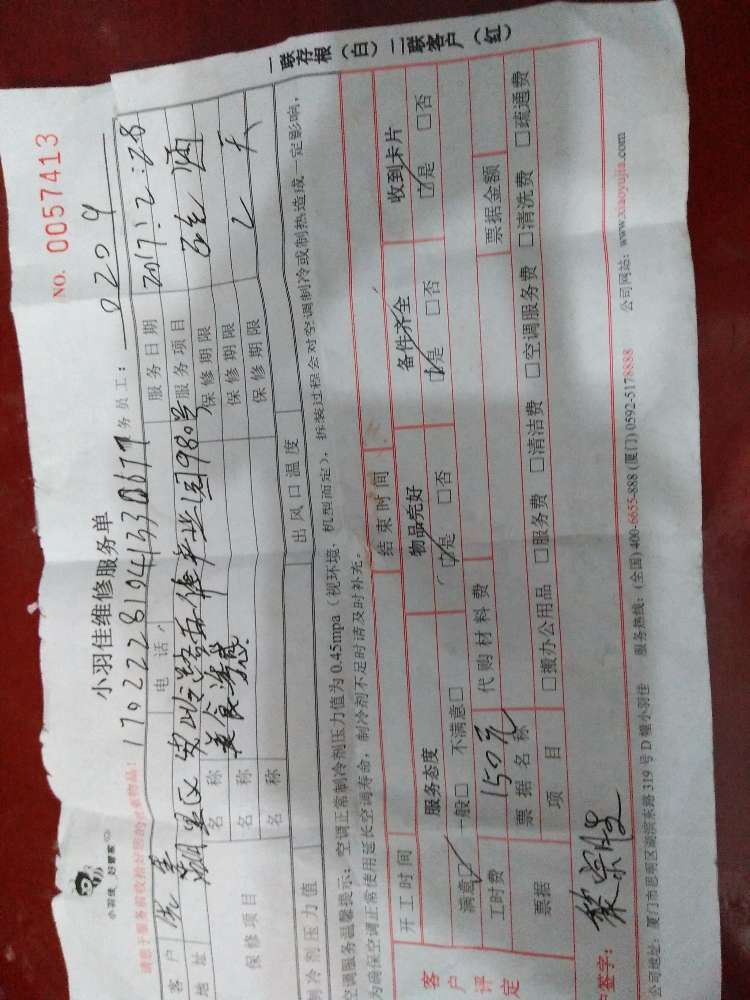 NO. 0057413
小羽佳 好管家
小羽佳维修服务单
17022228194133
务员工: 0209
客户
电话
服务日期 2017:12:28
地址 湖里区
980号
服务项目
保修项目
名称 美食
保修期限
名称
保修期限
名称
保修期限
制冷剂压力值
出风口温度
空调服务温馨提示: 空调正常制冷剂压力值为0.45mpa (视环境, 机型而定), 拆装过程会对空调制冷或制热造成一定影响,
为确保空调正常使用延长空调寿命, 制冷剂不足时请及时补充。
一联存根(白) 二联客户(红)
开工时间
结束时间
客户评定
服务态度
物品完好
备件齐全
收到卡片
满意☑ 一般□ 不满意□
☑是 □否
☑是 □否
☑是 □否
工时费 150元
代购材料费
票据
票据名称
票据金额
项目
□搬办公用品 □服务费 □清洁费 □空调服务费 □清洗费 □疏通费
签字:
公司地址: 厦门市思明区湖滨东路319号D幢小羽佳 服务热线: (全国) 400-6655-888 (厦门) 0592-5178888 公司网站: www.xiaoyujia.com